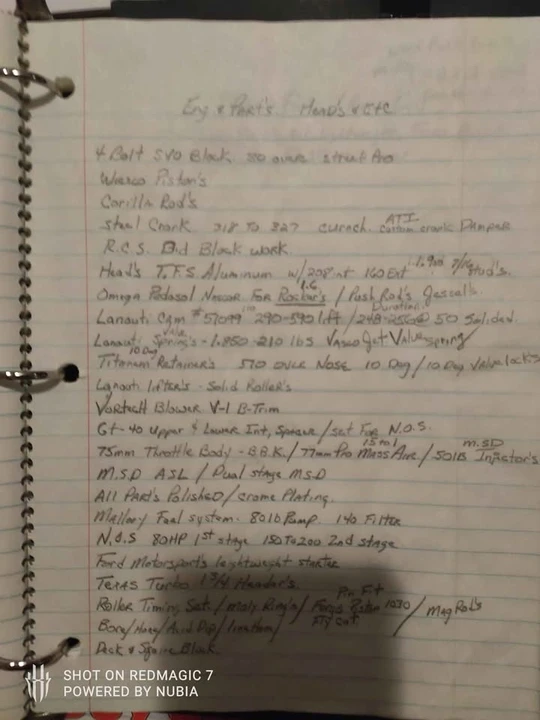 Eng & Part's Head's & Etc
4 Bolt SVO Block over street Pro
Wiseco Piston's
Carilla Rod's
Steel Crank 318 To 327 curnch. ATI custom crank Damper
R.C.S. Did Block work.
Head's T.F.S. Aluminum w/208 int 160 Ext 1.900 7/16 stud's.
Omega Pedasol Nascar For Rocker's 1.6 / Push Rod's Jessel's
Lanauti Cam #51099 290-590 lift / Duration 248-256@ 50 Solided
Lanauti Valve Spring's - 1.850-210 lbs Vasco Jet Value spring
10 Deg Titanium Retainer's 570 over Nose 10 Deg / 10 Deg Valve locks
Lanauti lifter's - Solid Roller's
Vortech Blower V-1 B-Trim
Gt-40 upper & Lower Int, / set For N.O.S.
75mm Throttle Body - B.B.K. / 77mm Pro Mass Aire. / 50lb M.SD Injector's
M.S.D ASL / Dual stage M.S.D
All Part's Polished / crome Plating.
Mallory Fuel system. 80lb Pump 140 Filter
N.O.S 80HP 1st stage 150 To 200 2nd stage
Ford Motorsport's leightweight starter
Texas Turbo 1 3/4 Header's
Roller Timing Set. / Moly Ring's / Forgs Piston Pin Ft Fly cut 1030 / Mag Rod's
Bore / Hone / Acid Dip /
Deck & Sqaire Block
SHOT ON REDMAGIC 7
POWERED BY NUBIA